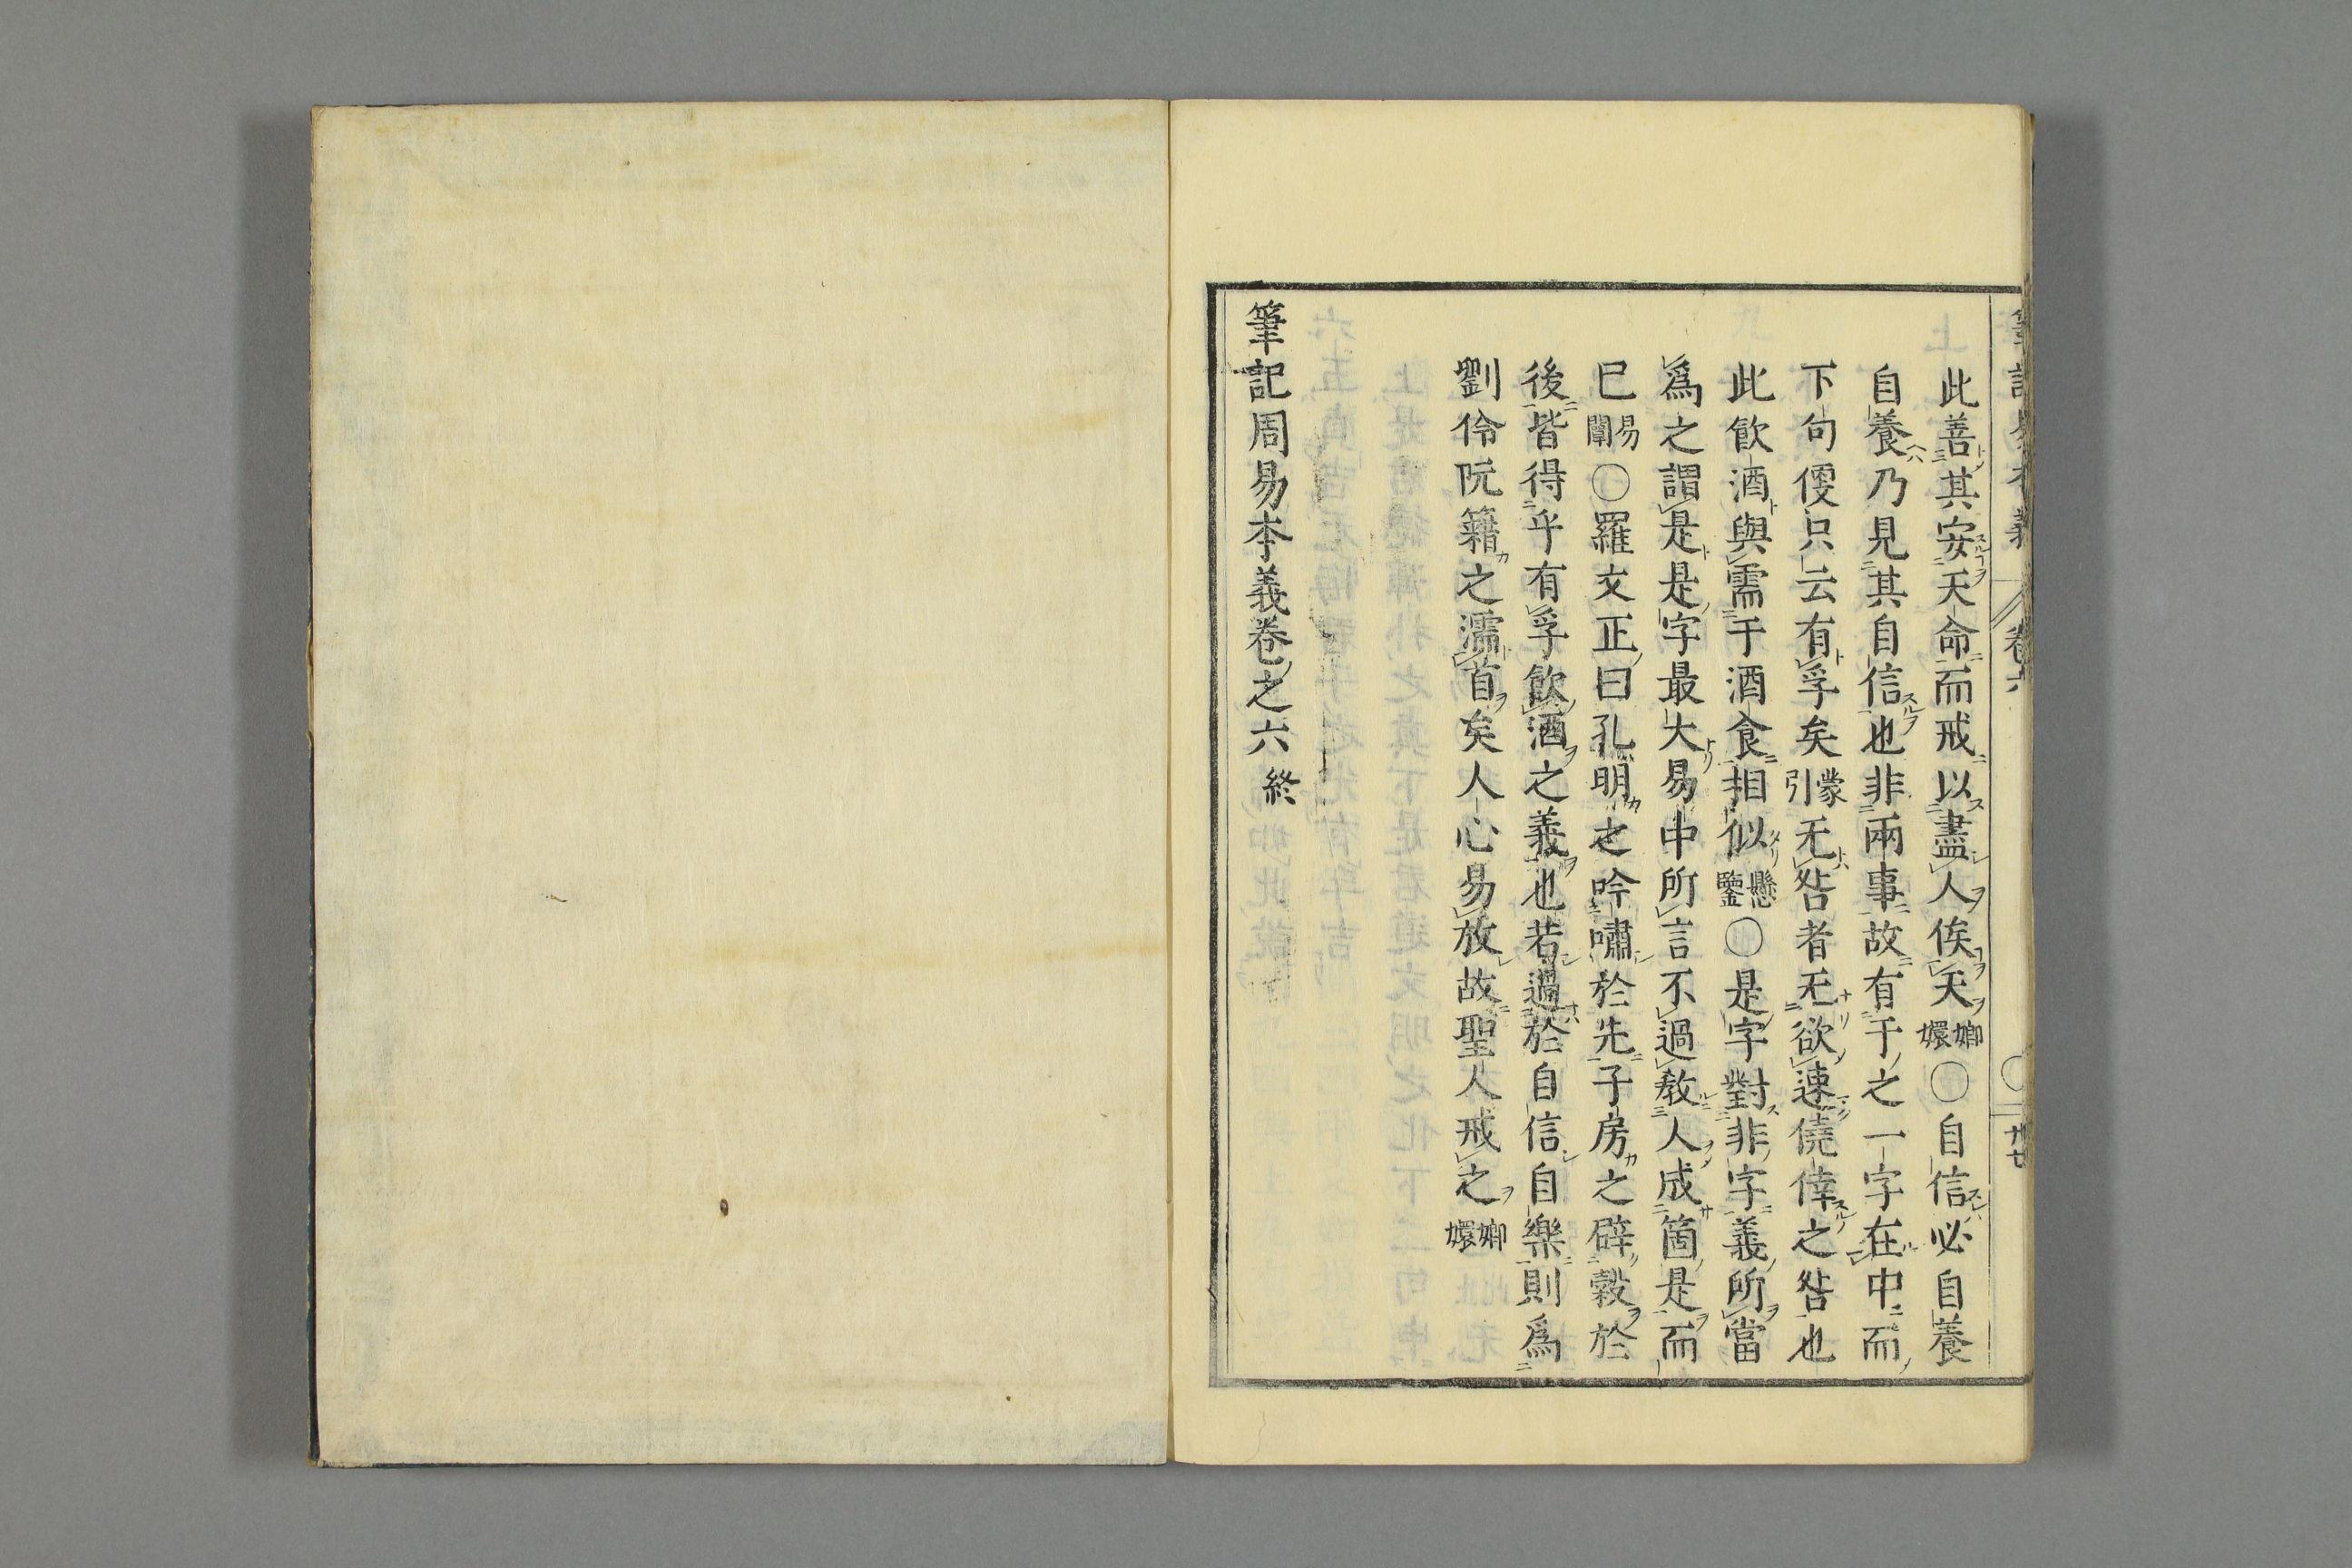 此善其安天命而戒以盡人俟天嫏嬛〇自信必自養
自養乃見其自信也非兩事故有于之一字在中而
下句便只云有孚矣蒙引无咎者无欲速僥倖之咎也
此飮酒與需于酒食相似懸鑒〇是字對非字義所當
爲之謂是是字最大易中所言不過敎人成箇是而
已易闡〇羅文正曰孔明之吟嘯於先子房之辟穀於
後皆得乎有孚飮酒之義也若過於自信自樂則爲
劉伶阮籍之濡首矣人心易放故聖人戒之嫏嬛
筆記周易本義卷之六終